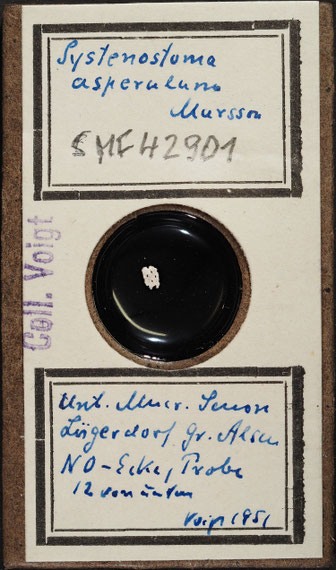 Systenostoma
asperulum
Marsson
SMF 42901
Coll. Voigt
Unt. Mucr. Senon
Lägerdorf, Gr. Alsen
NO-Ecke, Probe
12 von unten
Voigt 1951